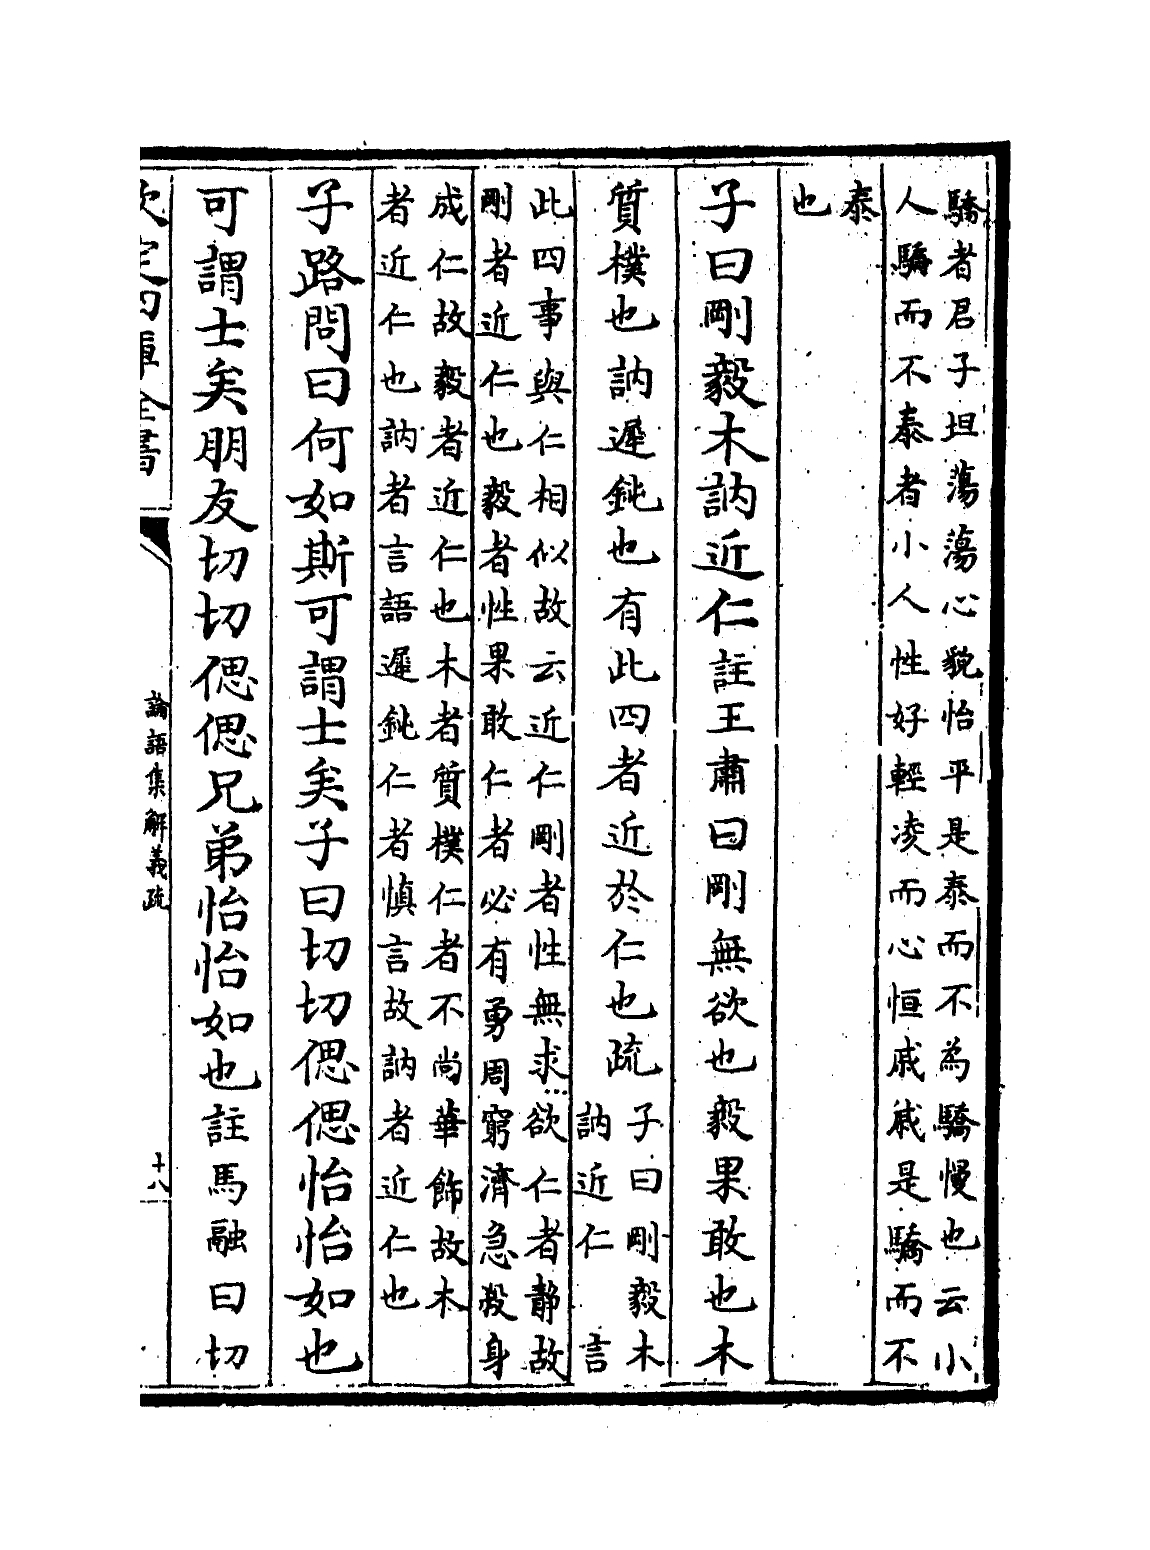 驕者君子坦蕩蕩心貌怡平是泰而不為驕慢也云小
人驕而不泰者小人性好輕凌而心恒戚戚是驕而不
泰
也
子曰剛毅木訥近仁註王肅曰剛無欲也毅果敢也木
質樸也訥遲鈍也有此四者近於仁也疏
子曰剛毅木
訥近仁 言
此四事與仁相似故云近仁剛者性無求欲仁者靜故
剛者近仁也毅者性果敢仁者必有勇周窮濟急殺身
成仁故毅者近仁也木者質樸仁者不尚華飾故木
者近仁也訥者言語遲鈍仁者慎言故訥者近仁也
子路問曰何如斯可謂士矣子曰切切偲偲怡怡如也
可謂士矣朋友切切偲偲兄弟怡怡如也註馬融曰切
欽定四庫全書
論語集解義疏
十八